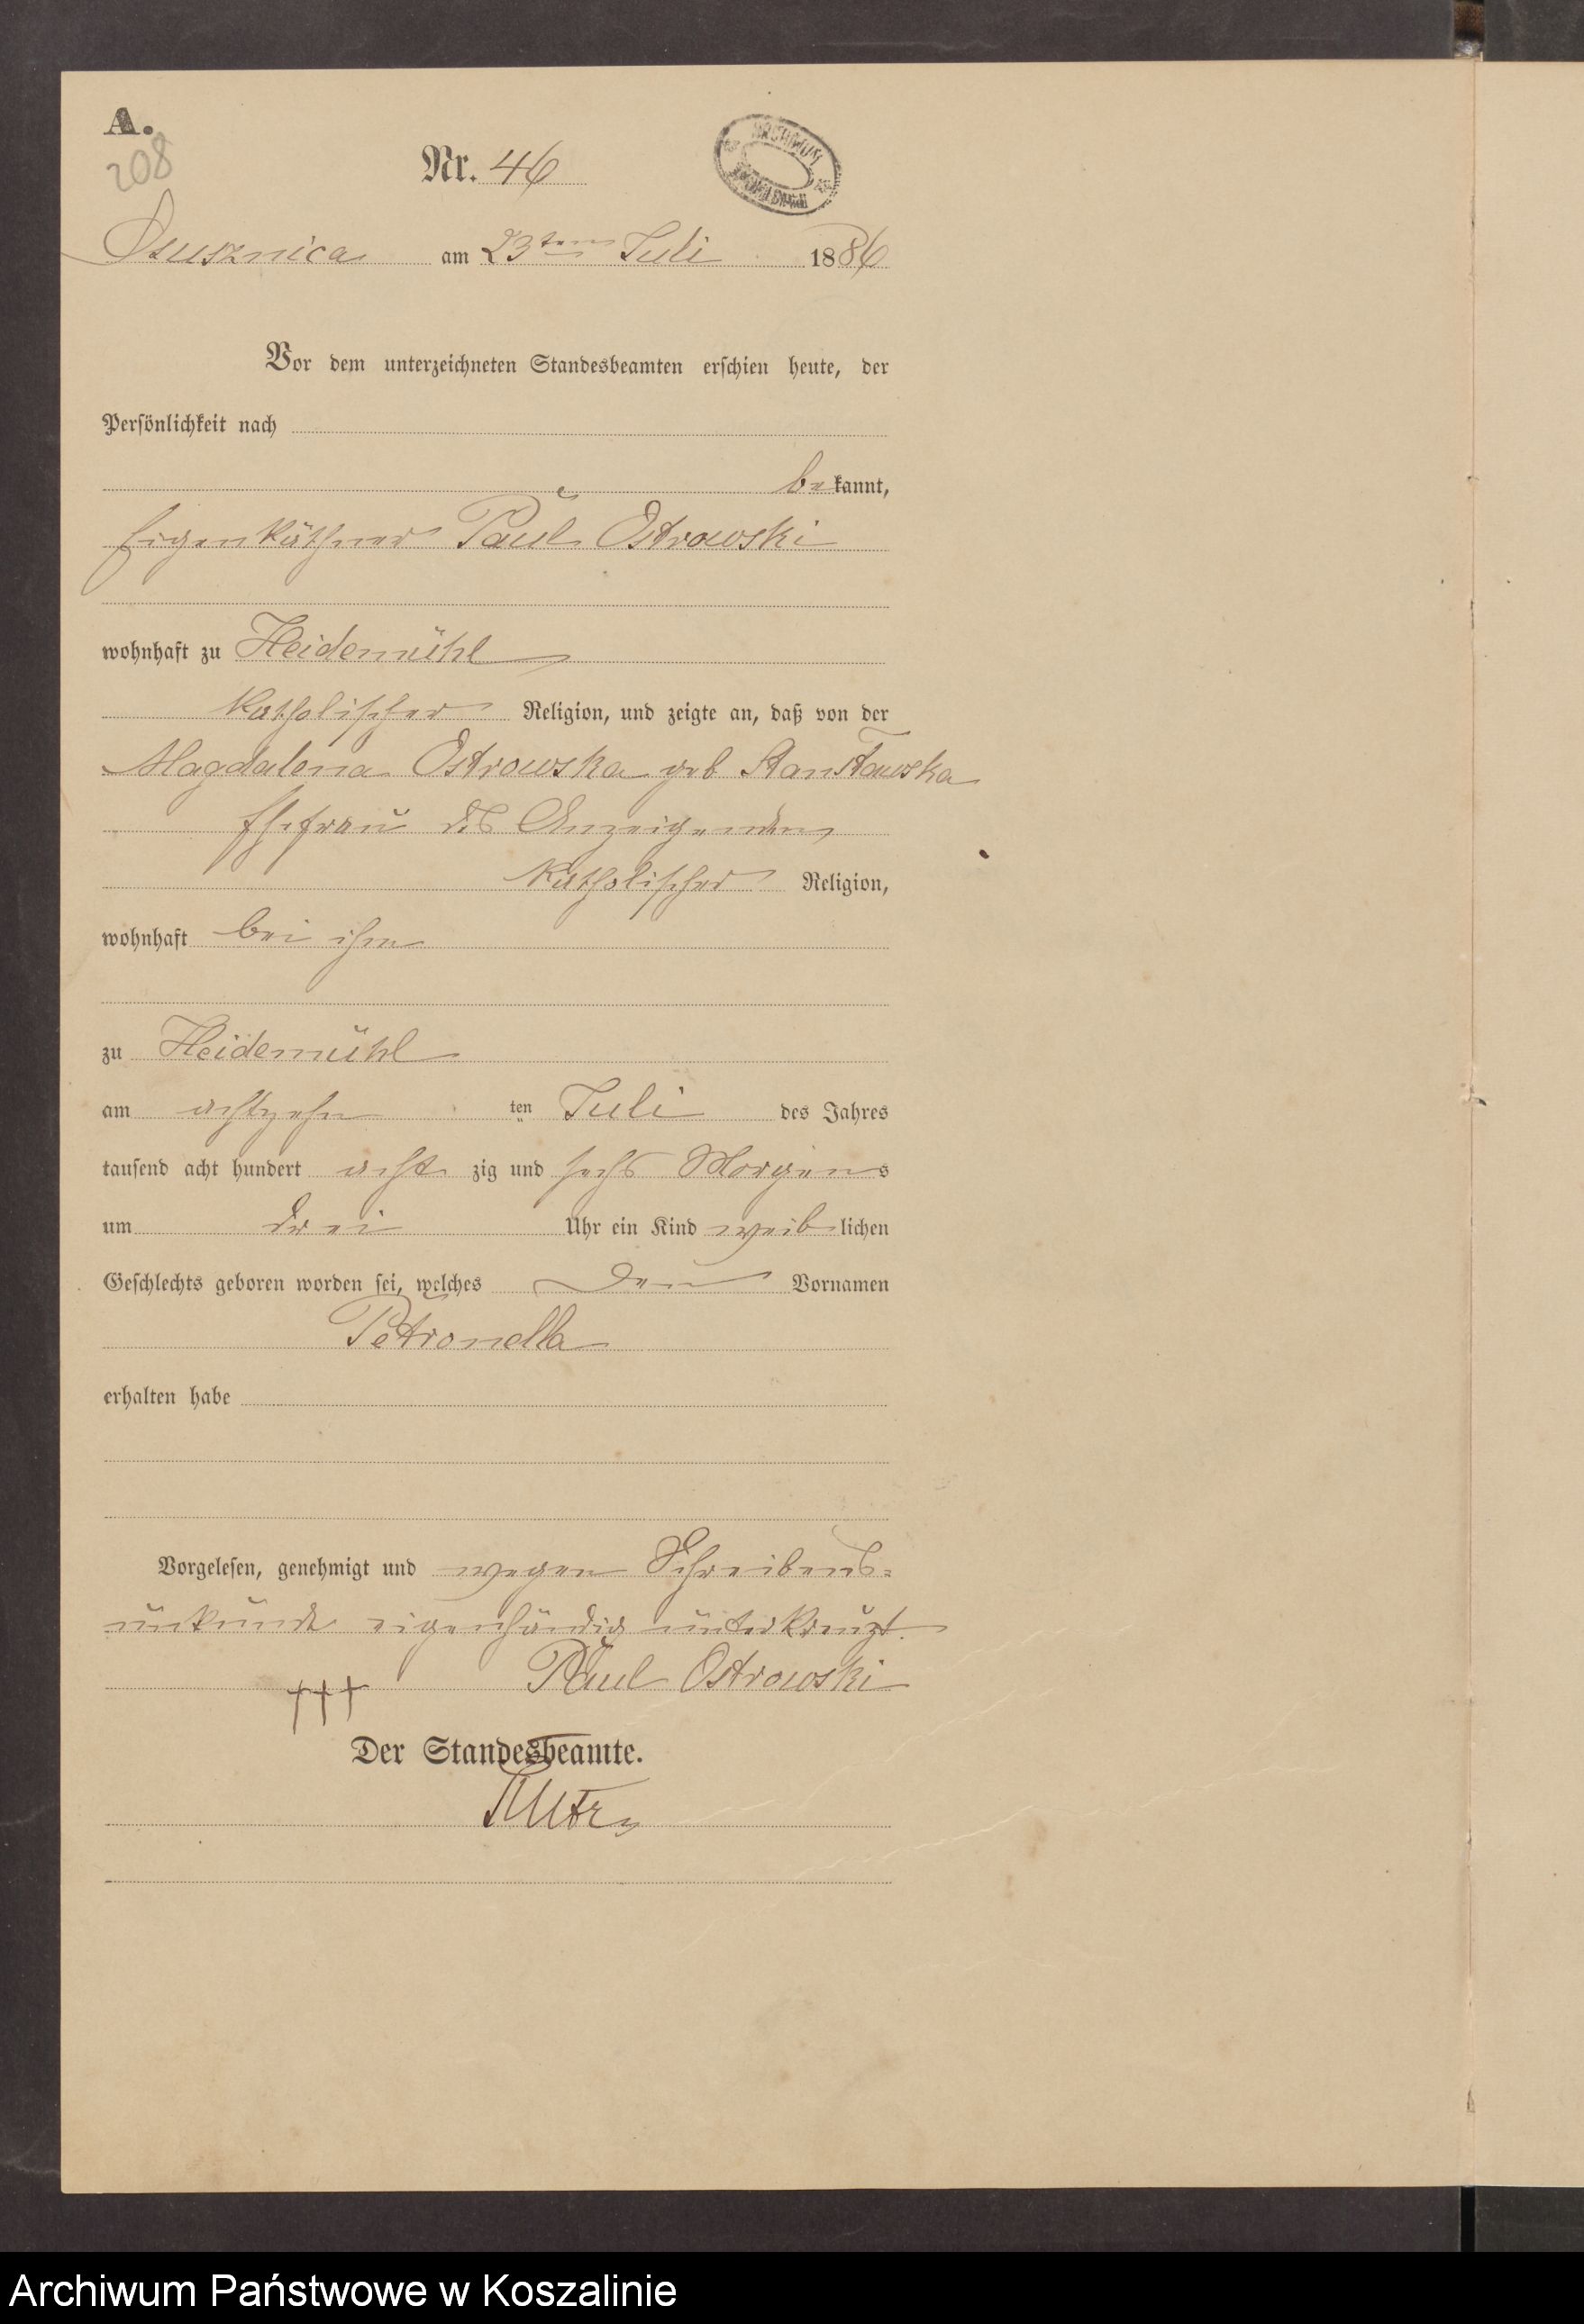 A.
208
Nr. 46
ARCHIWUM
Osusznica am 23ten Juli 1886
Vor dem unterzeichneten Standesbeamten erschien heute, der
Persönlichkeit nach
bekannt,
Eigenkäthner Paul Ostrowski
wohnhaft zu Heidemühl
katholischer Religion, und zeigte an, daß von der
Magdalena Ostrowska geb Stanisławska
Ehefrau des Anzeigenden
katholischer Religion,
wohnhaft bei ihm
zu Heidemühl
am achtzehn ten Juli des Jahres
tausend acht hundert acht zig und sechs Morgens
um drei Uhr ein Kind weiblichen
Geschlechts geboren worden sei, welches den Vornamen
Petronella
erhalten habe
Vorgelesen, genehmigt und wegen Schreibens-
unkunde eigenhändig unterkreuzt.
††† Paul Ostrowski
Der Standesbeamte.
Archiwum Państwowe w Koszalinie